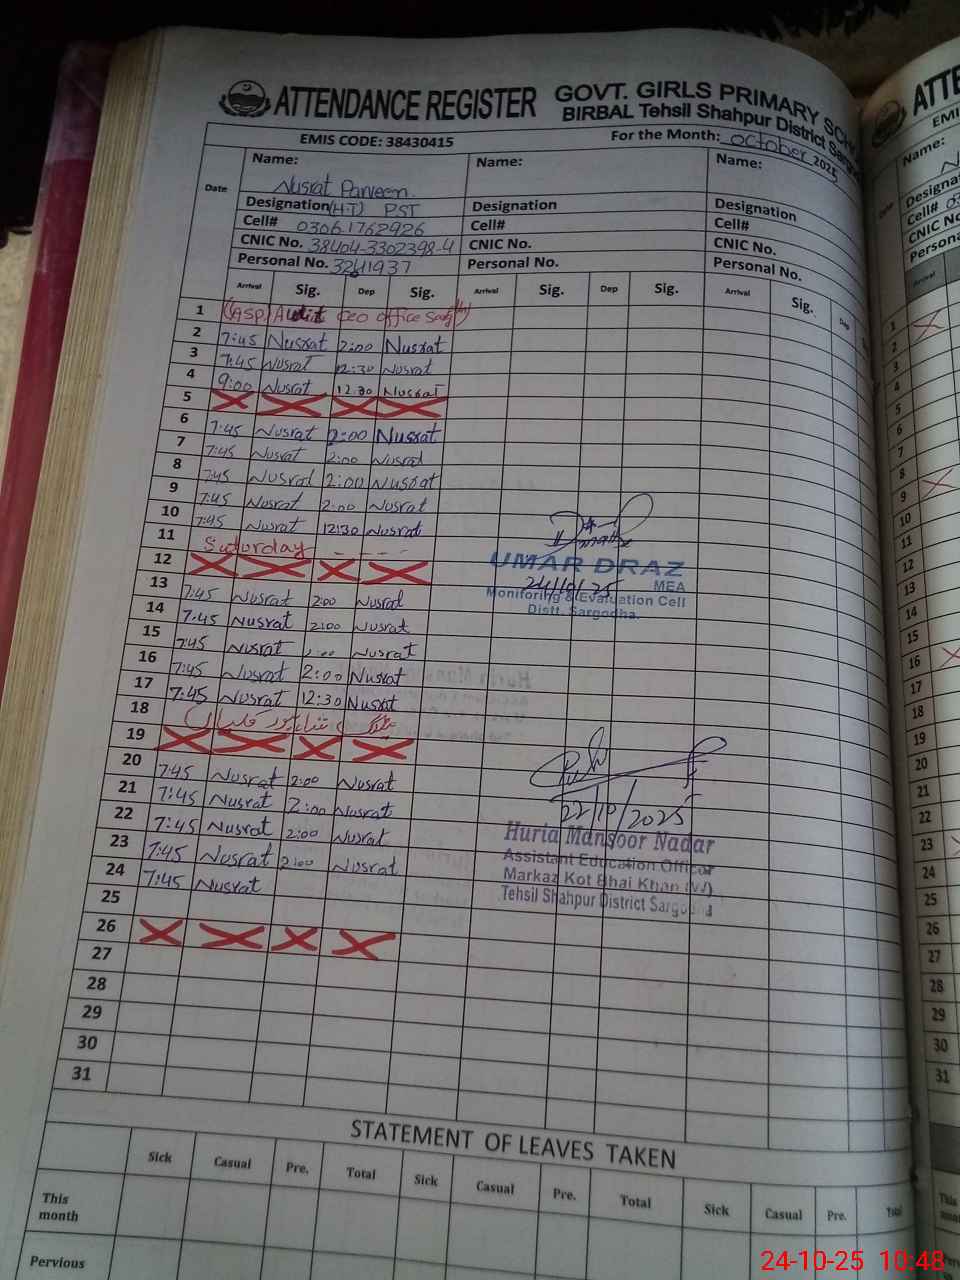 ATTENDANCE REGISTER
GOVT. GIRLS PRIMARY SCH
BIRBAL Tehsil Shahpur District Sarg
EMIS CODE: 38430415
For the Month: October 2025
Date
Name: Nusrat Parveen
Name:
Name:
Designation (H.T) PST
Designation
Designation
Cell# 0306 1762926
Cell#
Cell#
CNIC No. 38404-3302398-4
CNIC No.
CNIC No.
Personal No. 3241937
Personal No.
Personal No.
Arrival Sig. Dep Sig. Arrival Sig. Dep Sig. Arrival Sig. Dep
1 (ASP) Audit CEO office
2 7:45 Nusrat 2:00 Nusrat
3 7:45 Nusrat 12:30 Nusrat
4 9:00 Nusrat 12:30 Nusrat
5
6 7:45 Nusrat 2:00 Nusrat
7 7:45 Nusrat 2:00 Nusrat
8 7:45 Nusrat 2:00 Nusrat
9 7:45 Nusrat 2:00 Nusrat
10 7:45 Nusrat 12:30 Nusrat
11 Saturday - - -
12
13 7:45 Nusrat 2:00 Nusrat
14 7:45 Nusrat 2:00 Nusrat
15 7:45 Nusrat 2:00 Nusrat
16 7:45 Nusrat 2:00 Nusrat
17 7:45 Nusrat 12:30 Nusrat
18
19
20 7:45 Nusrat 2:00 Nusrat
21 7:45 Nusrat 2:00 Nusrat
22 7:45 Nusrat 2:00 Nusrat
23 7:45 Nusrat 2:00 Nusrat
24 7:45 Nusrat
25
26
27
28
29
30
31
UMAR DRAZ
24/10/25
MEA
Monitoring & Evaluation Cell
Distt. Sargodha.
22/10/2025
Huria Mansoor Nadar
Assistant Education Officer
Markaz Kot Bhai Khan (W)
Tehsil Shahpur District Sargodha
STATEMENT OF LEAVES TAKEN
Sick Casual Pre. Total Sick Casual Pre. Total Sick Casual Pre. Total
This month
Pervious
ATTE
EMI
Name:
Designa
Cell#
CNIC No
Persona
Arrival
1
2
3
4
5
6
7
8
9
10
11
12
13
14
15
16
17
18
19
20
21
22
23
24
25
26
27
28
29
30
31
24-10-25 10:48